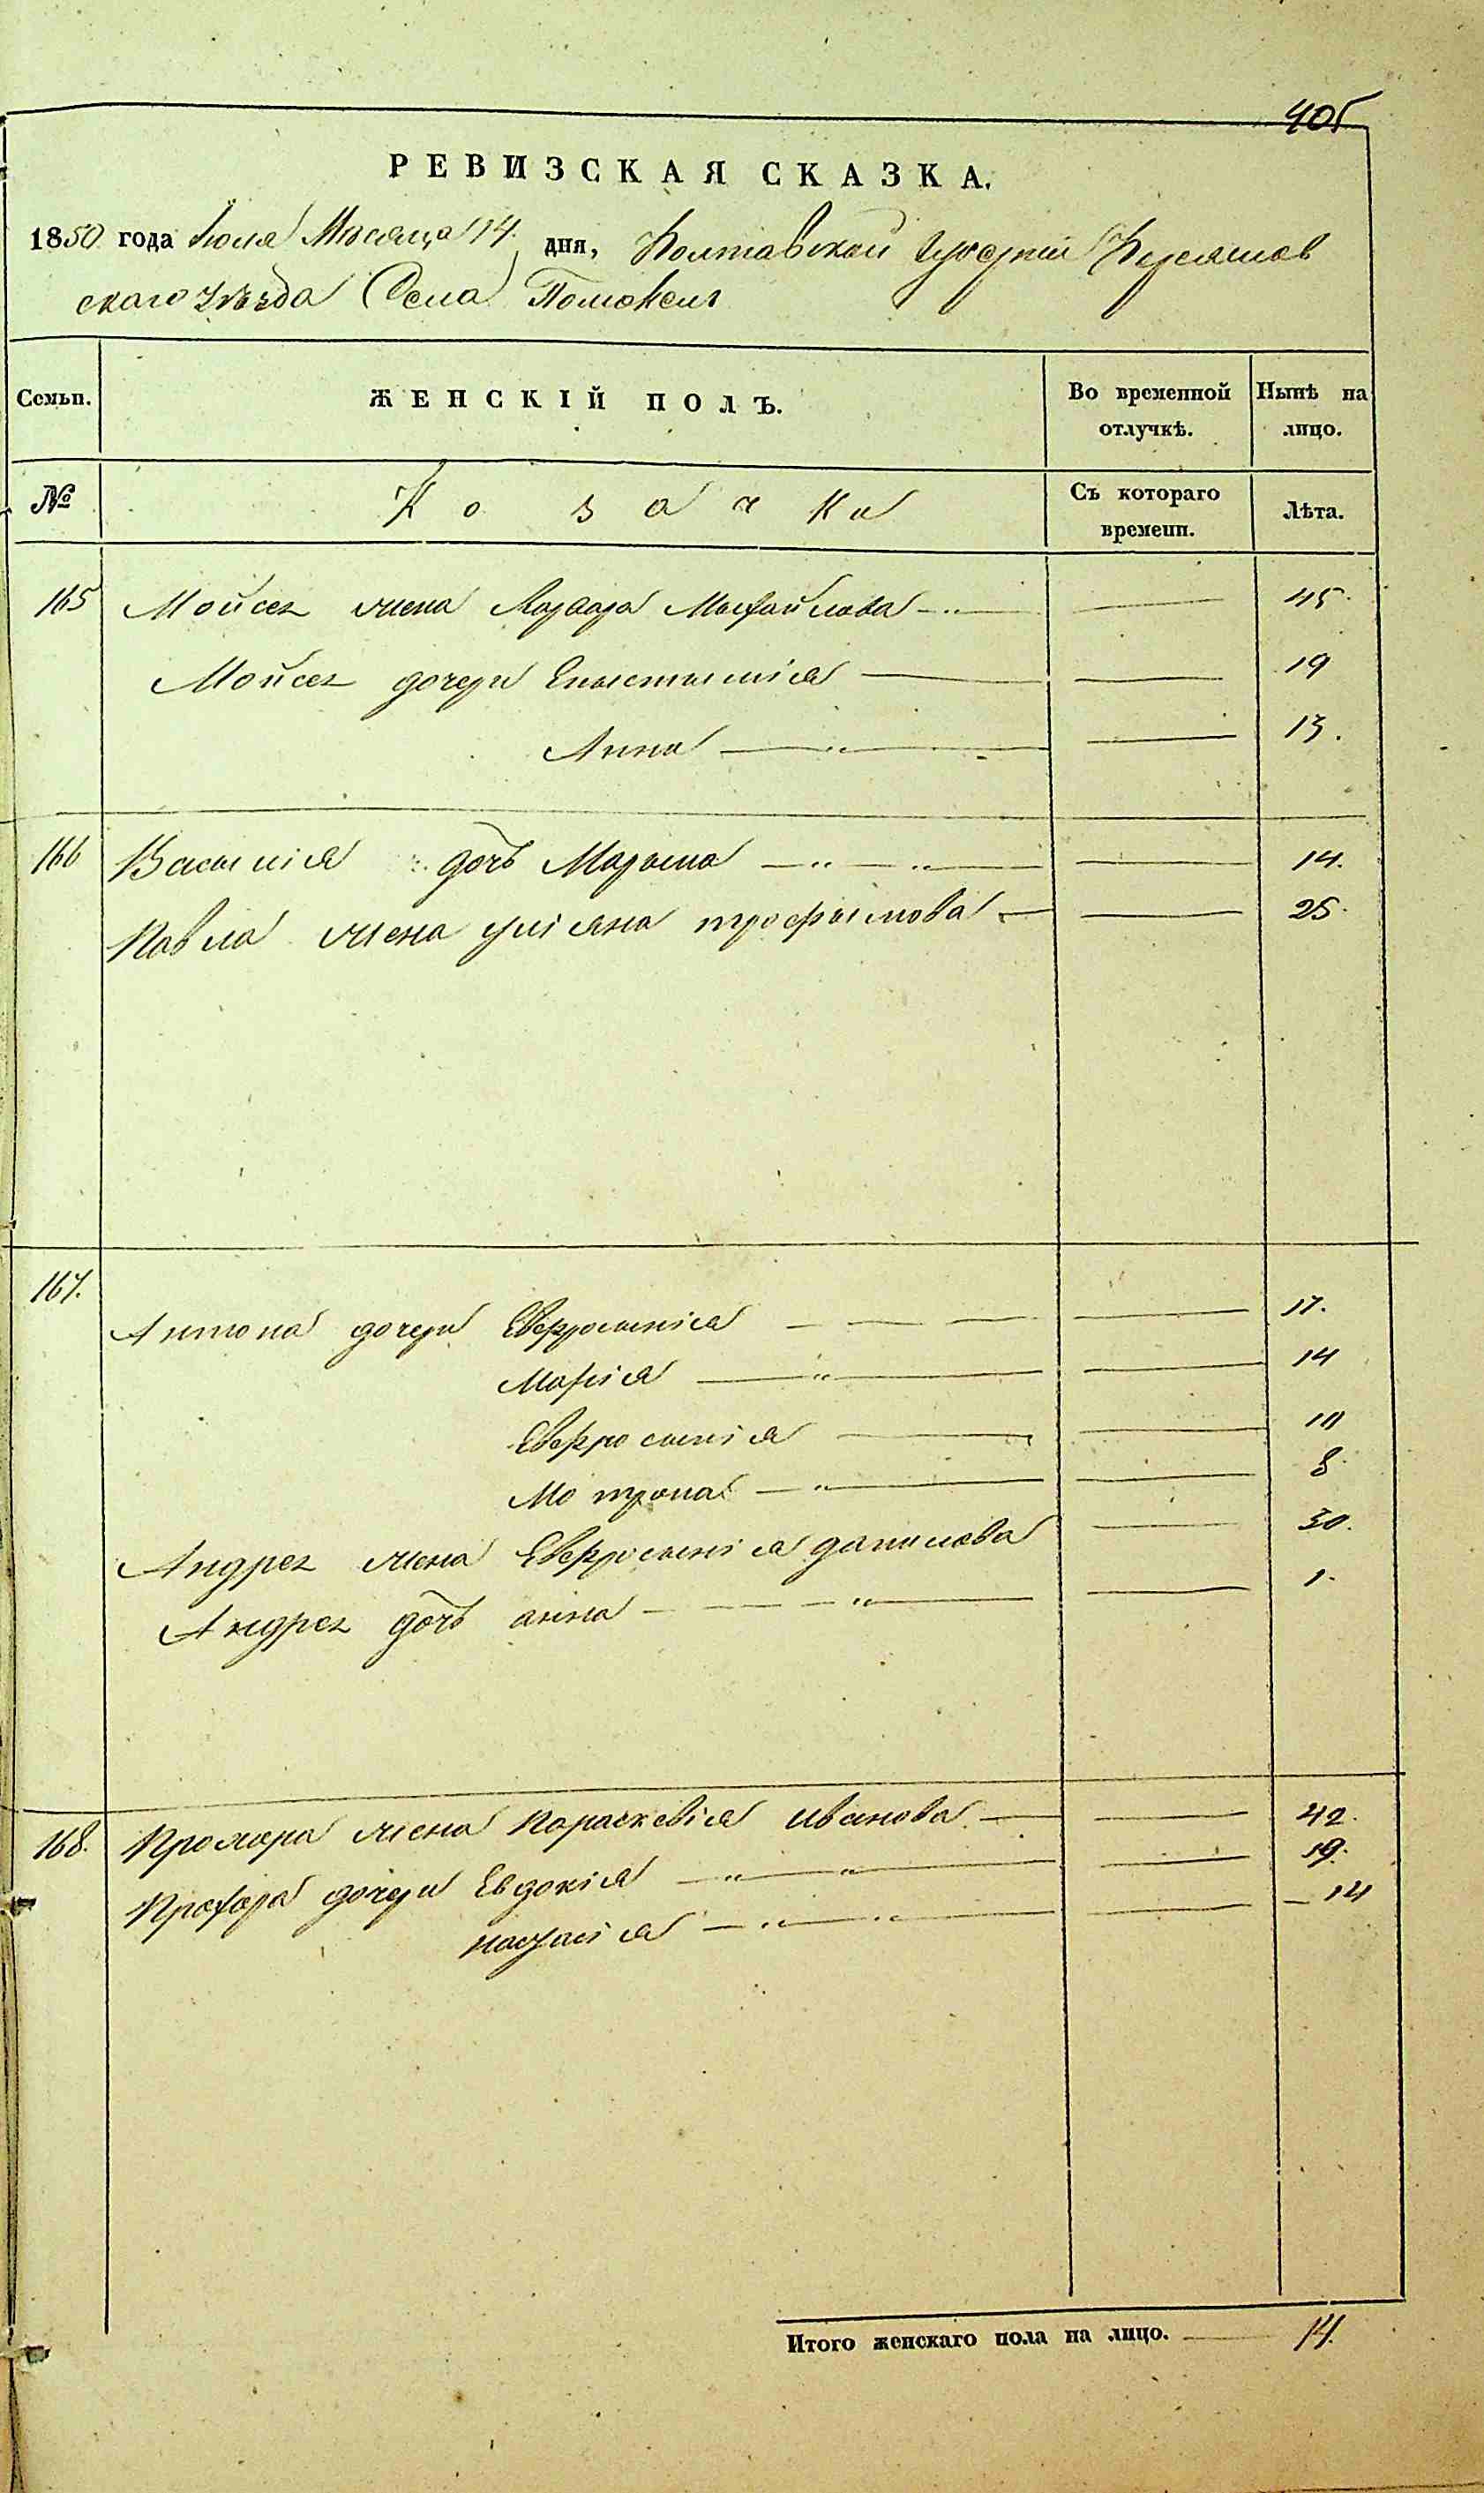 405
РЕВИЗСКАЯ СКАЗКА.
1850 года Июля Месяца 14 дня, Полтавской Губерніи
скаго Уѣзда Села
Семьи. ЖЕНСКІЙ ПОЛЪ. Во временной отлучкѣ. Нынѣ на лицо.
№ Козачки Съ котораго времени. Лѣта.
165 Мойсея жена Варвара Михайлова 45.
Мойсея дочери 19
Анна 13.
166 Василія дочь Марына 14.
Павла жена Уліяна трофымова 25.
167. Антона дочери Евфросинія 17.
Марія 14
Евфросинія
Мотрона 8
Андрея жена Евфросинія данилова 30.
Андрея дочь анна 1.
168. Прохора жена Параскевія Иванова 42.
Прохора дочери Евдокія 19.
14
Итого женскаго пола на лицо. 14.